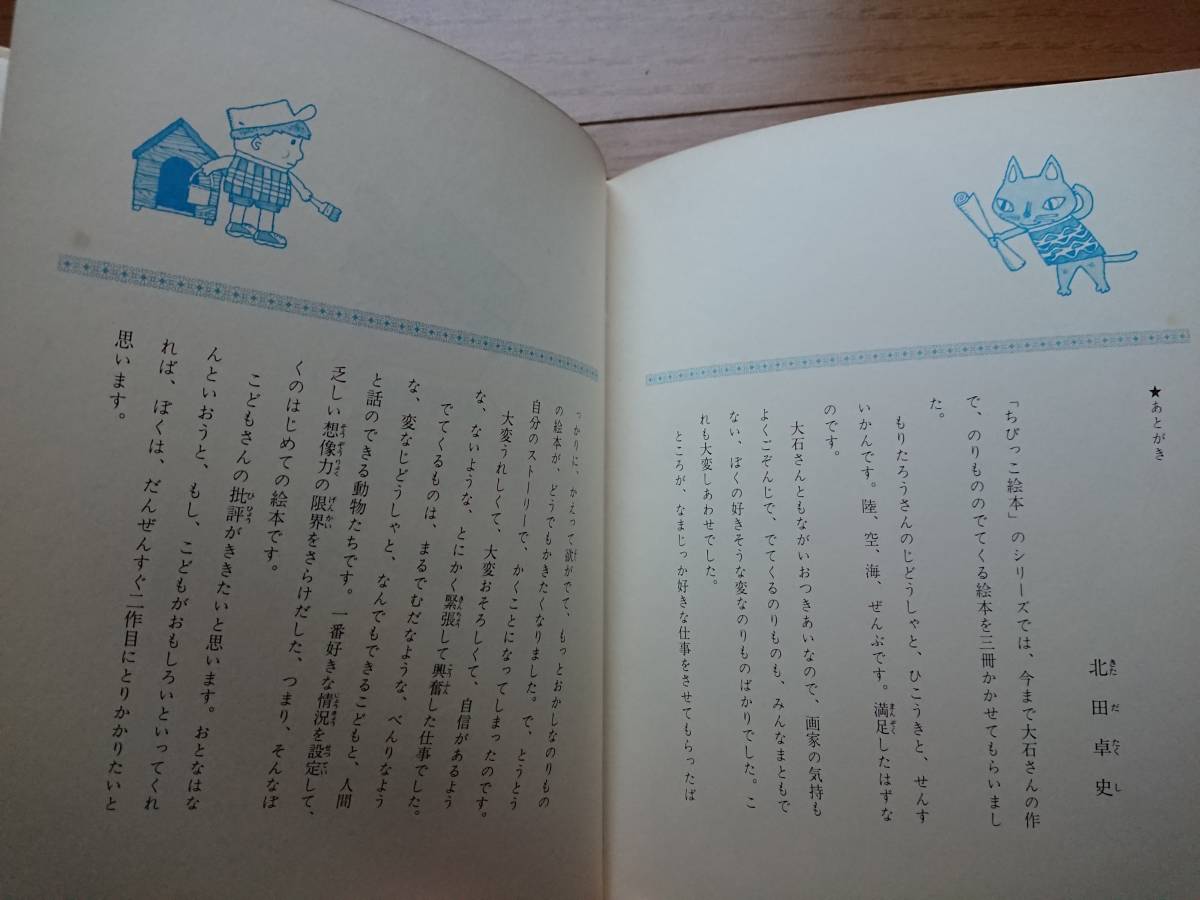 ★あとがき
北田卓史
きただたくし
「ちびっこ絵本」のシリーズでは、今まで大石さんの作
で、のりもののでてくる絵本を三冊かかせてもらいまし
た。
もりたろうさんのじどうしゃと、ひこうきと、せんす
いかんです。陸、空、海、ぜんぶです。満足したはずな
まんぞく
のです。
大石さんともながいおつきあいなので、画家の気持も
よくごぞんじで、でてくるのりものも、みんなまともで
ない、ぼくの好きそうな変なのりものばかりでした。こ
れも大変しあわせでした。
ところが、なまじっか好きな仕事をさせてもらったば
っかりに、かえって欲がでて、もっとおかしなのりもの
の絵本が、どうでもかきたくなりました。で、とうとう
自分のストーリーで、かくことになってしまったのです。
大変うれしくて、大変おそろしくて、自信があるよう
な、ないような、とにかく緊張して興奮した仕事でした。
きんちょう
こうふん
でてくるものは、まるでむだなような、べんりなよう
な、変なじどうしゃと、なんでもできるこどもと、人間
と話のできる動物たちです。一番好きな情況を設定して、
じょうきょう
せってい
乏しい想像力の限界をさらけだした、つまり、そんなぼ
そうぞうりょく
げんかい
くのはじめての絵本です。
こどもさんの批評がききたいと思います。おとなはな
ひひょう
んといおうと、もし、こどもがおもしろいといってくれ
れば、ぼくは、だんぜんすぐ二作目にとりかかりたいと
思います。